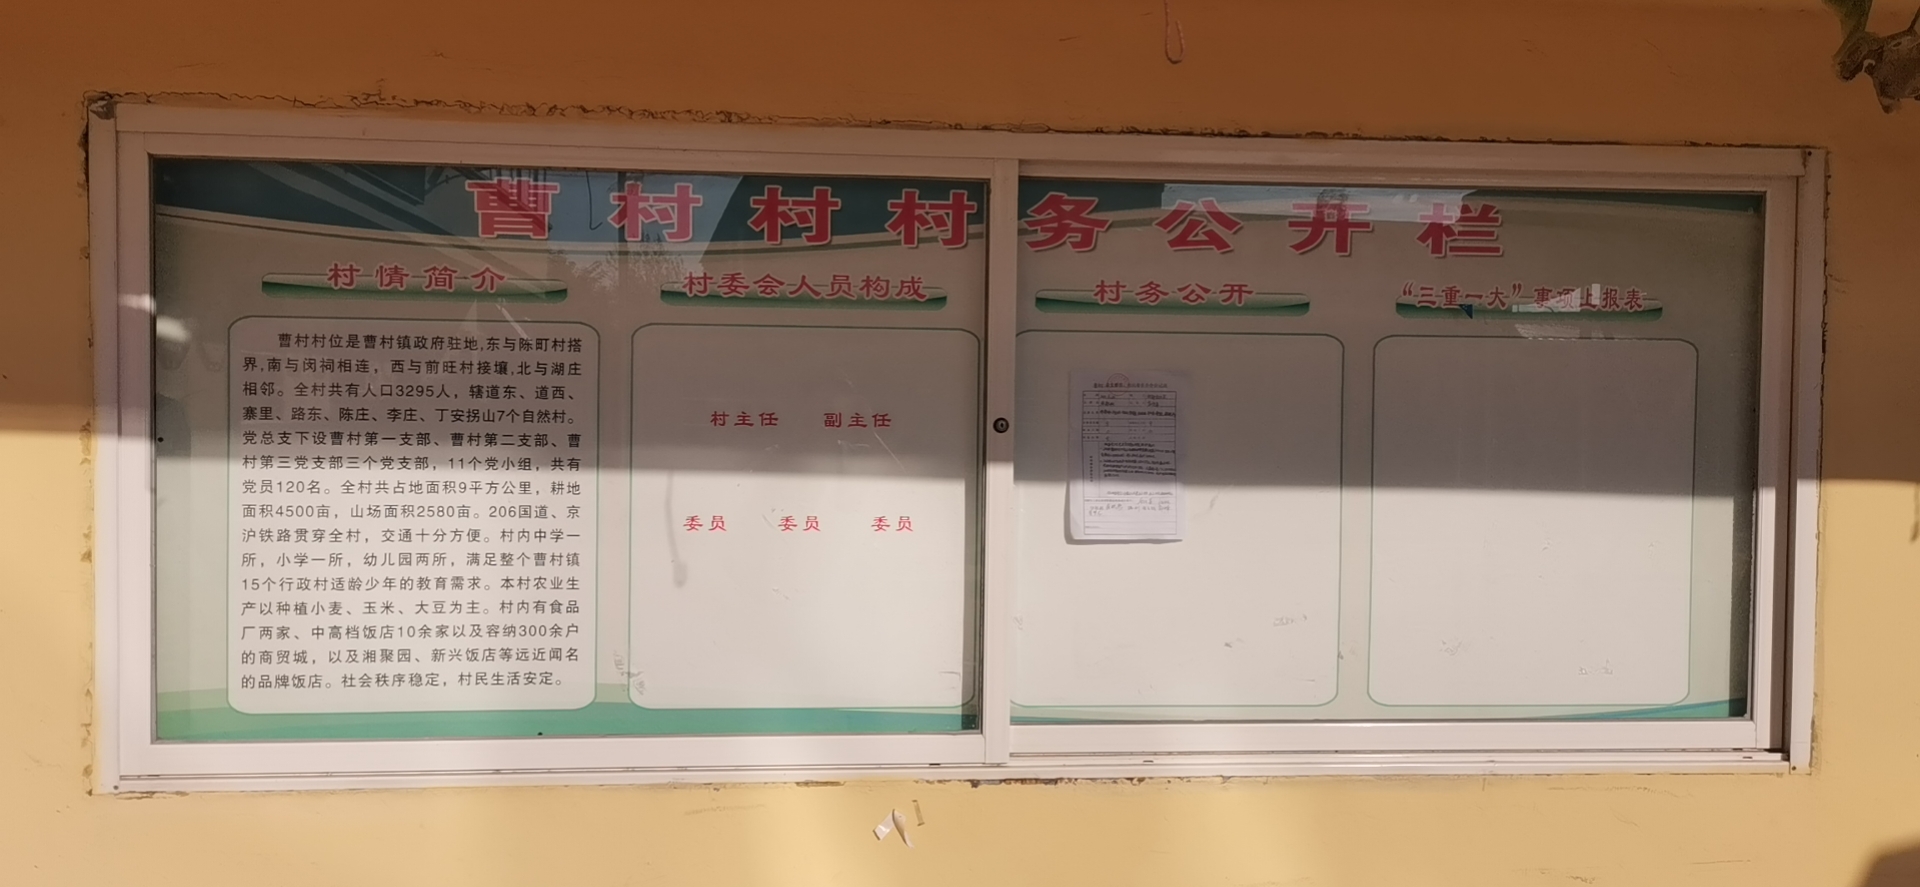 曹村村村务公开栏
村情简介
曹村村位是曹村镇政府驻地,东与陈町村搭
界,南与闵祠相连，西与前旺村接壤,北与湖庄
相邻。全村共有人口3295人，辖道东、道西、
寨里、路东、陈庄、李庄、丁安拐山7个自然村。
党总支下设曹村第一支部、曹村第二支部、曹
村第三党支部三个党支部，11个党小组，共有
党员120名。全村共占地面积9平方公里，耕地
面积4500亩，山场面积2580亩。206国道、京
沪铁路贯穿全村，交通十分方便。村内中学一
所，小学一所，幼儿园两所，满足整个曹村镇
15个行政村适龄少年的教育需求。本村农业生
产以种植小麦、玉米、大豆为主。村内有食品
厂两家、中高档饭店10余家以及容纳300余户
的商贸城，以及湘聚园、新兴饭店等远近闻名
的品牌饭店。社会秩序稳定，村民生活安定。
村委会人员构成
村主任 副主任
委员 委员 委员
村务公开
“三重一大”事项上报表